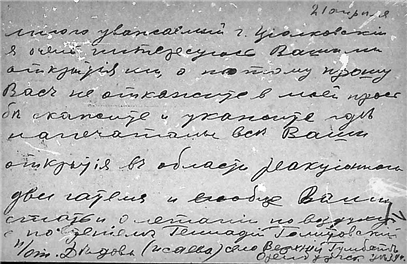 21 апреля
много уважаемый г. Циолковский
я очень интересуюсь Вашими
открытiями, а поэтому прошу
Васъ не откажите в моей прось
бѣ скажите и укажите гдѣ
напечатаны все Ваши
открытiя въ области реакцiоннаго
двигателя и вообще Ваши
статьи о летанiи по воздуху
с почтенiем Геннадiй
п/от.